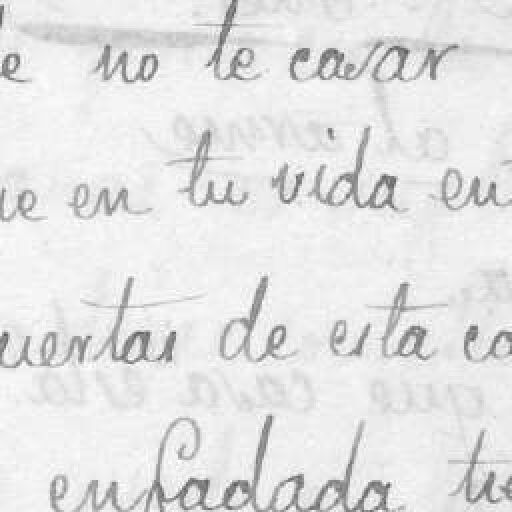 e no te casar
ue en tu vida en
uertas de esta ca
enfadada tu